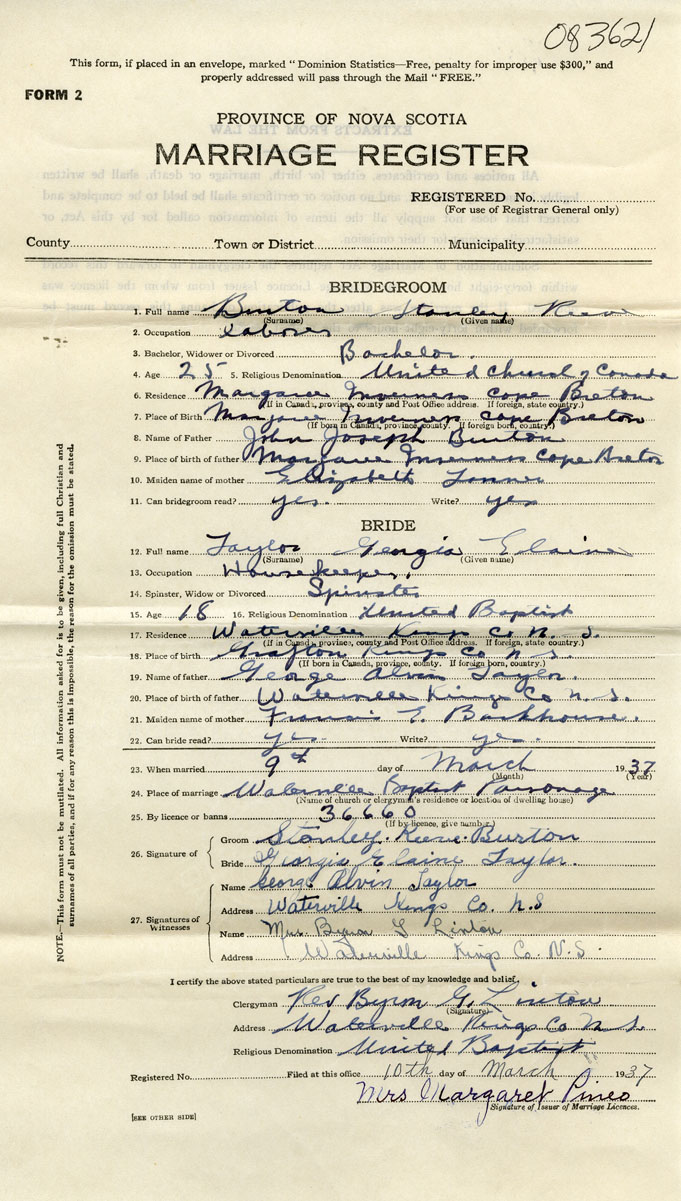 083621
This form, if placed in an envelope, marked "Dominion Statistics—Free, penalty for improper use $300," and
properly addressed will pass through the Mail "FREE."
FORM 2
PROVINCE OF NOVA SCOTIA
MARRIAGE REGISTER
REGISTERED No.
(For use of Registrar General only)
County Town or District Municipality
BRIDEGROOM
1. Full name Burton Stanley Reeve
(Surname) (Given name)
2. Occupation Laborer
3. Bachelor, Widower or Divorced Bachelor.
4. Age 25 5. Religious Denomination United Church of Canada
6. Residence Margaree Inverness Cape Breton
(If in Canada, province, county and Post Office address. If foreign, state country.)
7. Place of Birth Margaree Inverness Cape Breton
(If born in Canada, province, county. If foreign born, country.)
8. Name of Father John Joseph Burton
9. Place of birth of father Margaree Inverness Cape Breton
10. Maiden name of mother Elizabeth
11. Can bridegroom read? yes. Write? yes
BRIDE
12. Full name Taylor Georgia Elaine
(Surname) (Given name)
13. Occupation Housekeeper.
14. Spinster, Widow or Divorced Spinster
15. Age 18 16. Religious Denomination United Baptist
17. Residence Waterville Kings Co N. S.
(If in Canada, province, county and Post Office address. If foreign, state country.)
18. Place of birth Grafton Kings Co N. S.
(If born in Canada, province, county. If foreign born, country.)
19. Name of father George Alvin Taylor.
20. Place of birth of father Waterville Kings Co N. S.
21. Maiden name of mother Francis E. Backhouse.
22. Can bride read? yes. Write? yes.
23. When married 9th day of March 1937
(Month) (Year)
24. Place of marriage Waterville Baptist Parsonage
(Name of church or clergyman's residence or location of dwelling house)
25. By licence or banns 36660
(If by licence, give number)
26. Signature of
Groom Stanley Reeve Burton
Bride Georgia Elaine Taylor.
27. Signatures of Witnesses
Name George Alvin Taylor
Address Waterville Kings Co. N.S
Name Mrs. Byron G Linton
Address Waterville Kings Co. N.S.
I certify the above stated particulars are true to the best of my knowledge and belief.
Clergyman Rev Byron G. Linton
(Signature)
Address Waterville Kings Co N. S.
Religious Denomination United Baptist
Registered No. Filed at this office 10th day of March 1937
Mrs Margaret Pineo
Signature of Issuer of Marriage Licences.
[SEE OTHER SIDE]
NOTE.—This form must not be mutilated. All information asked for is to be given, including full Christian and
surnames of all parties, and if for any reason this is impossible, the reason for the omission must be stated.